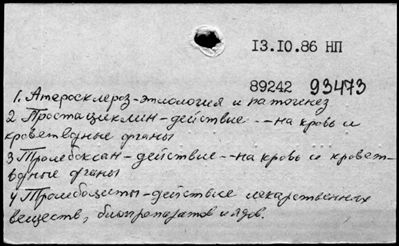 13.10.86 НП
89242 93473
1. Атеросклероз-этиология и патогенез
2 Простациклин-действие -- на кровь и
кроветворные органы
3 Тромбоксан-действие -- на кровь и кровет-
ворные органы
4 Тромбоциты-действие лекарственных
веществ, биопрепаратов и ядов.